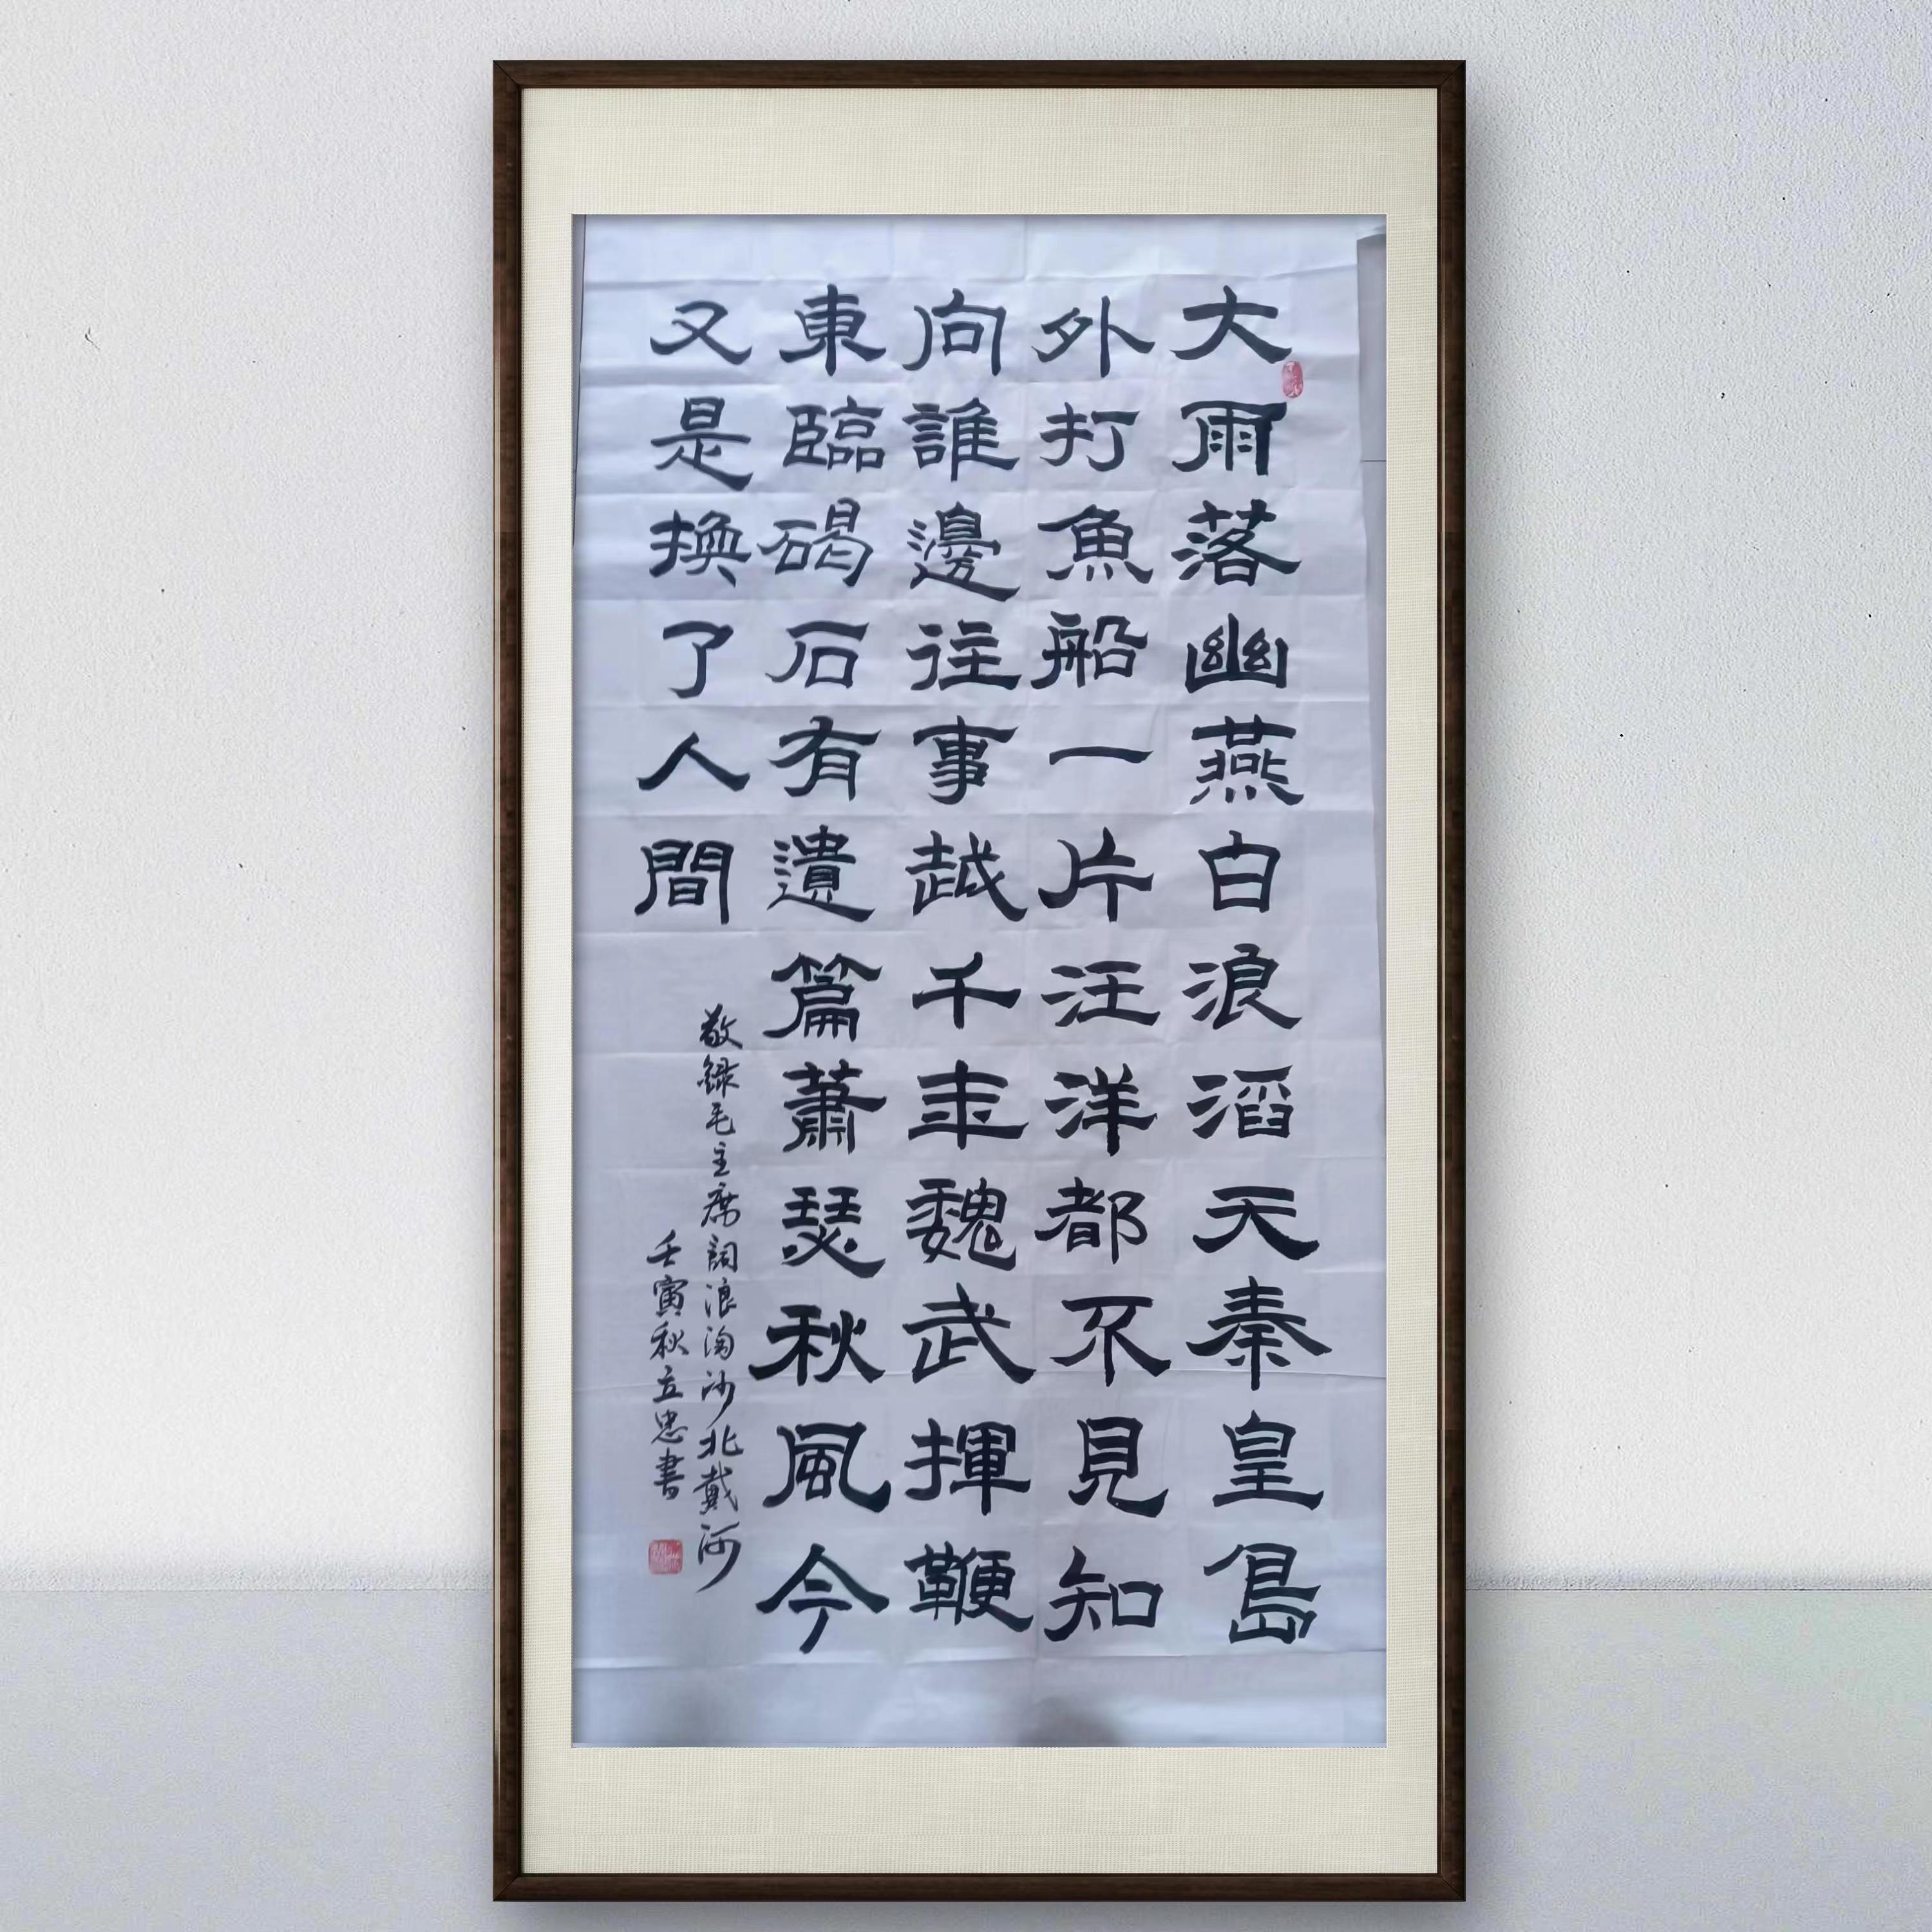 大雨落幽燕白浪滔天秦皇島
外打魚船一片汪洋都不見知
向誰邊往事越千年魏武揮鞭
東臨碣石有遺篇蕭瑟秋風今
又是換了人間
敬録毛主席詞浪淘沙北戴河
壬寅秋立忠書